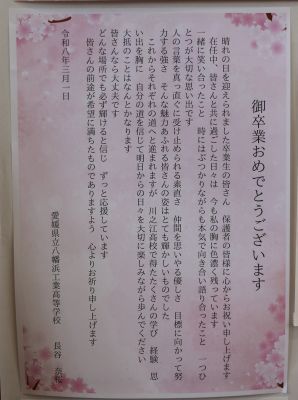 御卒業おめでとうございます
晴れの日を迎えられました卒業生の皆さん　保護者の皆様に心からお祝い申し上げます
在任中、皆さんと共に過ごした日々は　今も私の胸に色濃く残っています
一緒に笑い合ったこと　時にはぶつかりながらも本気で向き合い語り合ったこと　一つひ
とつが大切な思い出です
人の言葉を真っ直ぐに受け止められる素直さ　仲間を思いやる優しさ　目標に向かって努
力する強さ　そんな魅力あふれる皆さんの姿はとても輝かしいものでした
これからそれぞれの道へと進まれますが　川之江高校で得たたくさんの学び　経験　思
い出を胸に　自分の道を信じて明日からの日々を大切に楽しみながら歩んでください
大抵のことはなんとかなります
皆さんなら大丈夫です
どんな場所でも必ず輝けると信じ　ずっと応援しています
皆さんの前途が希望に満ちたものでありますよう　心よりお祈り申し上げます
令和八年三月一日
愛媛県立八幡浜工業高等学校　長谷